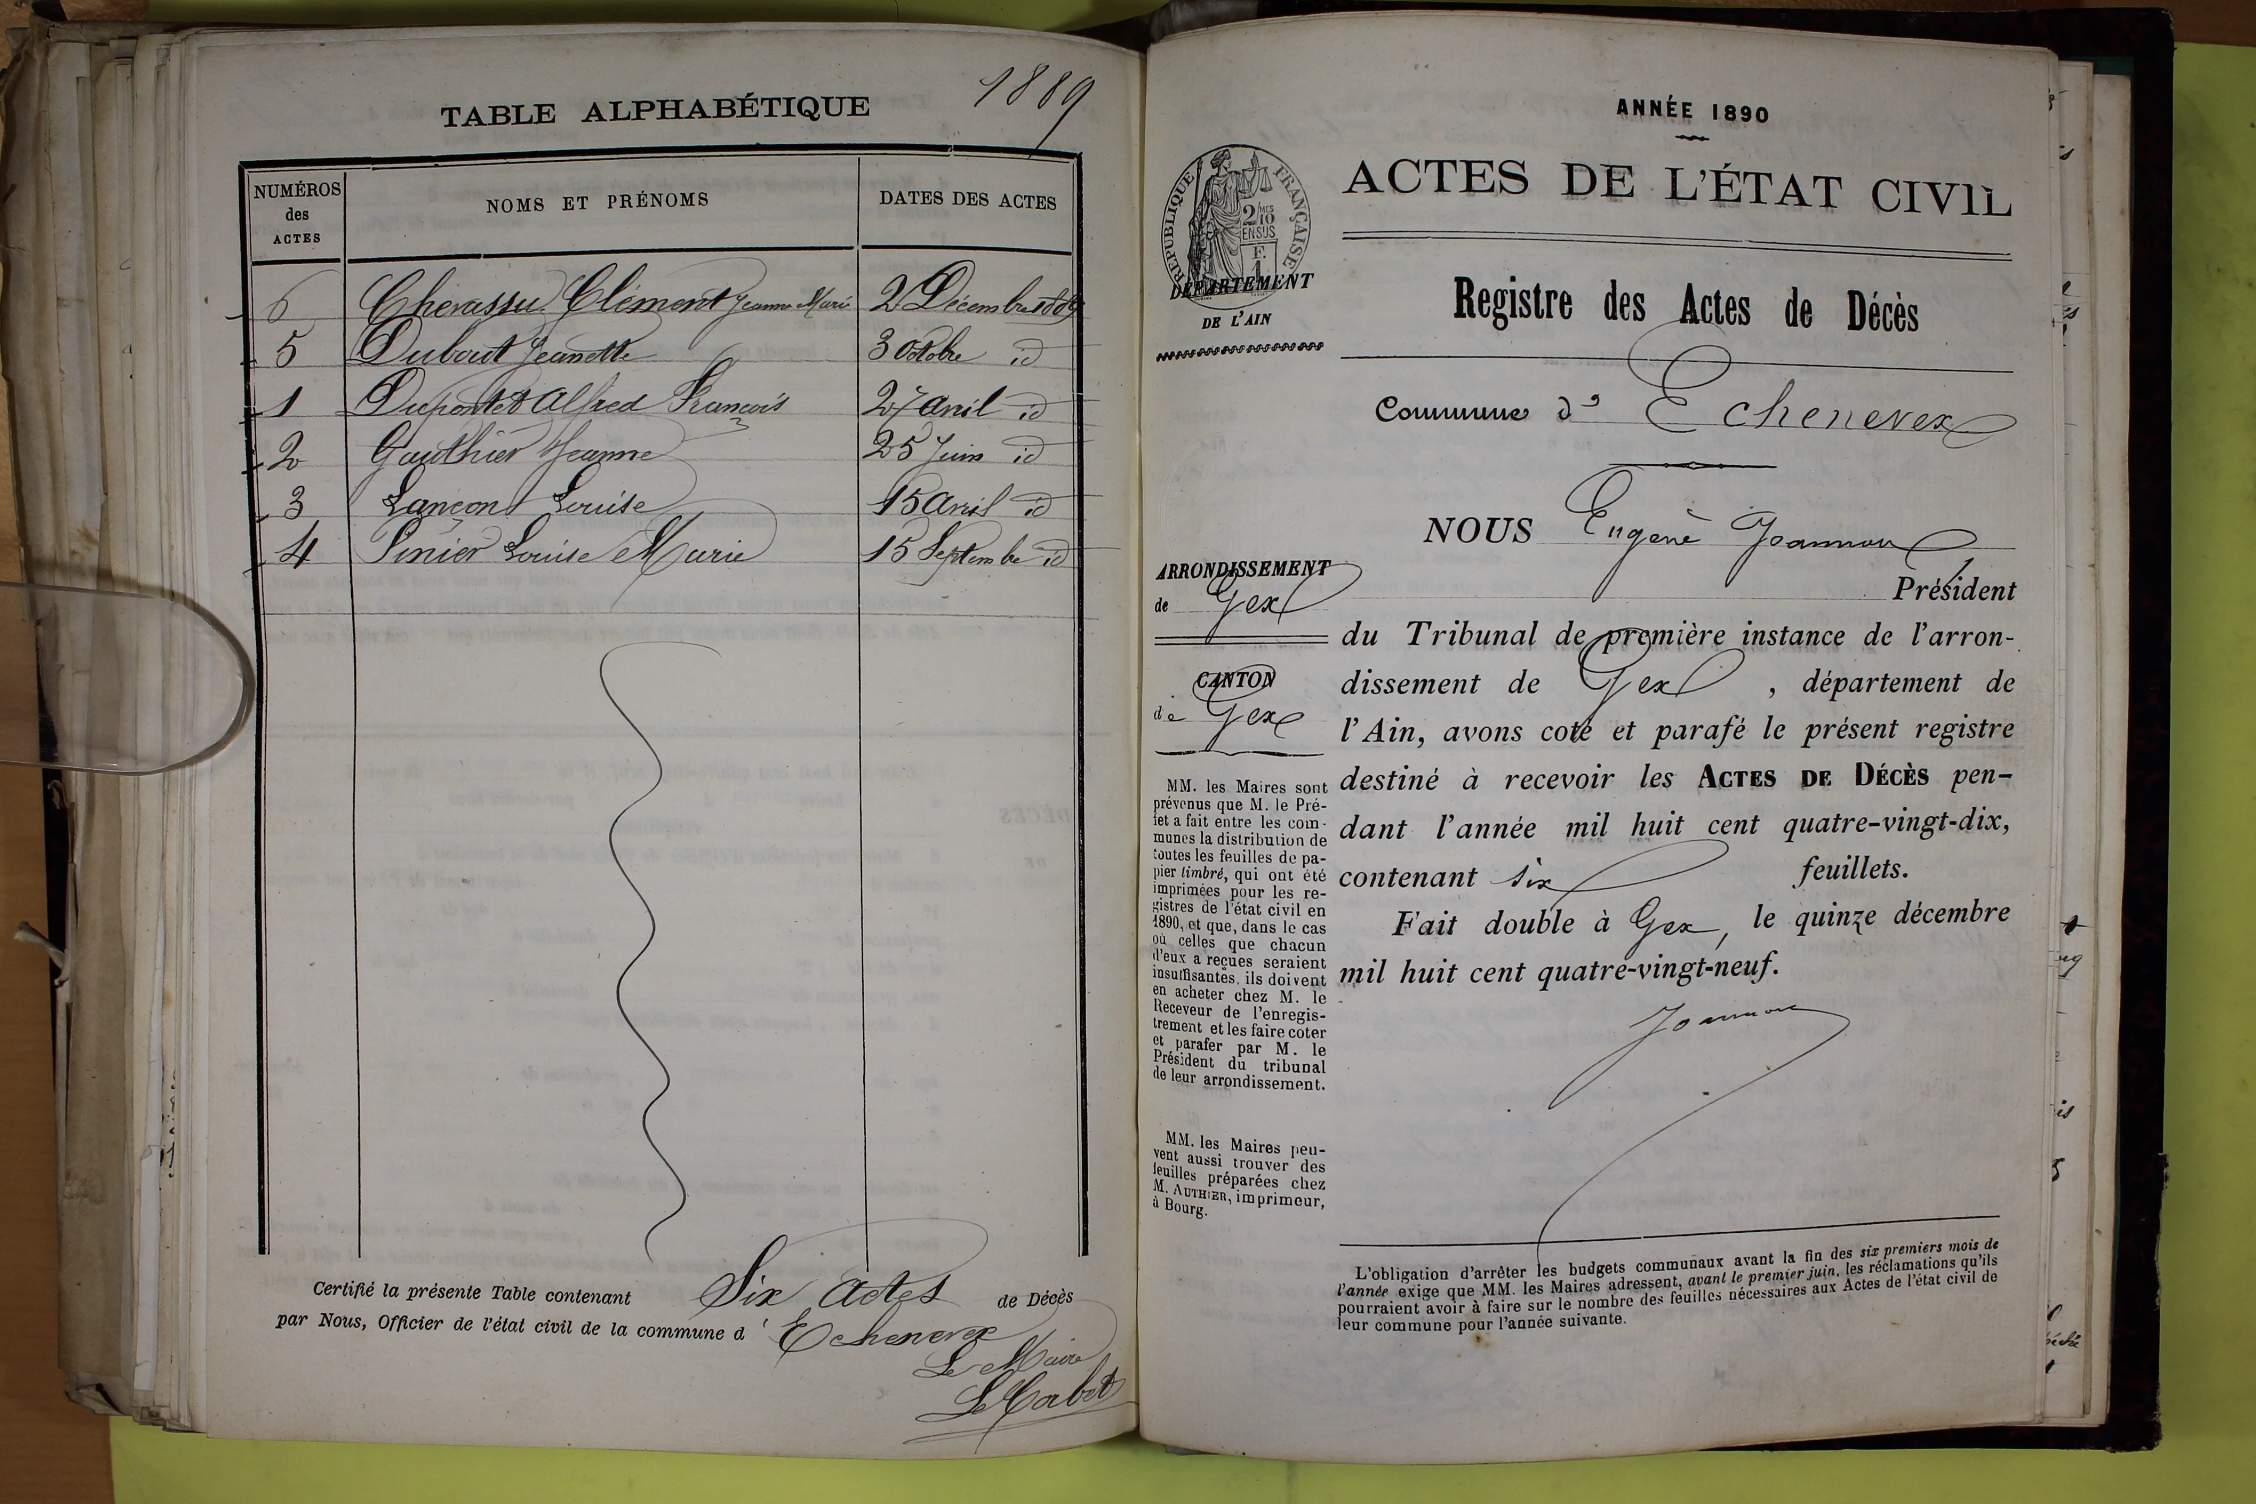 1889
TABLE ALPHABÉTIQUE
NUMÉROS des ACTES NOMS ET PRÉNOMS DATES DES ACTES
6 Chevassu Clément Jeanne Marie 2 Décembre 1889
5 Dubout Jeanette 3 Octobre id
1 Dupontet Alfred François 27 avril id
2 Gauthier Jeanne 25 Juin id
3 Lançon Louise 15 avril id
4 Pinier Louise Marie 15 Septembre id
Certifié la présente Table contenant Six actes de Décès
par Nous, Officier de l'état civil de la commune d' Echenevex
Le Maire
ANNÉE 1890
ACTES DE L'ÉTAT CIVIL
RÉPUBLIQUE FRANÇAISE
2/10 MES
EN SUS
F.
1
DÉPARTEMENT
DE L'AIN
Registre des Actes de Décès
Commune d' Echenevex
NOUS Eugène Joannon
Président
du Tribunal de première instance de l'arron-
dissement de Gex, département de
l'Ain, avons coté et parafé le présent registre
destiné à recevoir les ACTES DE DÉCÈS pen-
dant l'année mil huit cent quatre-vingt-dix,
contenant six feuillets.
Fait double à Gex, le quinze décembre
mil huit cent quatre-vingt-neuf.
Joannon
ARRONDISSEMENT
de Gex
CANTON
de Gex
MM. les Maires sont
prévenus que M. le Pré-
fet a fait entre les com-
munes la distribution de
toutes les feuilles de pa-
pier timbré, qui ont été
imprimées pour les re-
gistres de l'état civil en
1890, et que, dans le cas
où celles que chacun
d'eux a reçues seraient
insuffisantes, ils doivent
en acheter chez M. le
Receveur de l'enregis-
trement et les faire coter
et parafer par M. le
Président du tribunal
de leur arrondissement.
MM. les Maires peu-
vent aussi trouver des
feuilles préparées chez
M. AUTHIER, imprimeur,
à Bourg.
L'obligation d'arrêter les budgets communaux avant la fin des six premiers mois de
l'année exige que MM. les Maires adressent, avant le premier juin, les réclamations qu'ils
pourraient avoir à faire sur le nombre des feuilles nécessaires aux Actes de l'état civil de
leur commune pour l'année suivante.